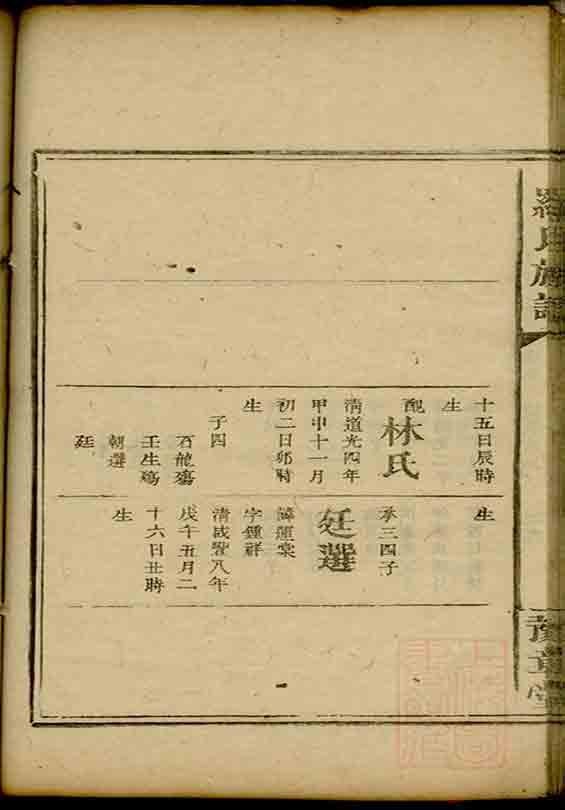 羅氏族譜
豫章堂
十五日辰時
生
配
林氏
清道光四年
甲申十一月
初二日卯時
生
子四
石龍殤
壬生殤
朝選
廷
生
承三四子
廷選
諱蓮棠
字鍾祥
清咸豐八年
戊午五月二
十六日丑時
生